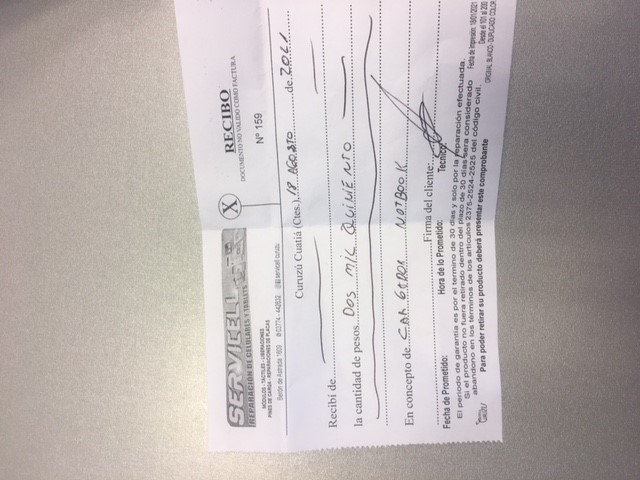 SERVICELL
REPARACIÓN DE CELULARES Y TABLETS
MODULOS - TACTILES - LIBERACIONES
PINES DE CARGA - REPARACIONES DE PLACAS
X
RECIBO
DOCUMENTO NO VALIDO COMO FACTURA
Nº 159
Curuzú Cuatiá (Ctes.), 18 AGOSTO de 2021
Recibí de
la cantidad de pesos DOS MIL QUINIENTO
En concepto de CARGADOR NOTBOOK
Firma del cliente:
Fecha de Prometido: Hora de lo Prometido: Tecnico:
El periodo de garantia es por el termino de 30 dias y solo por la reparación efectuada.
Si el producto no fuera retirado dentro del plazo de 30 dias sera considerado
abandono en los términos de los articulos 2375-2524-2525 del código civil.
Para poder retirar su producto deberá presentar este comprobante
Fecha de Impresión: 18/01/2021
Desde el 101 al 200
ORIGINAL BLANCO - DUPLICADO COLOR